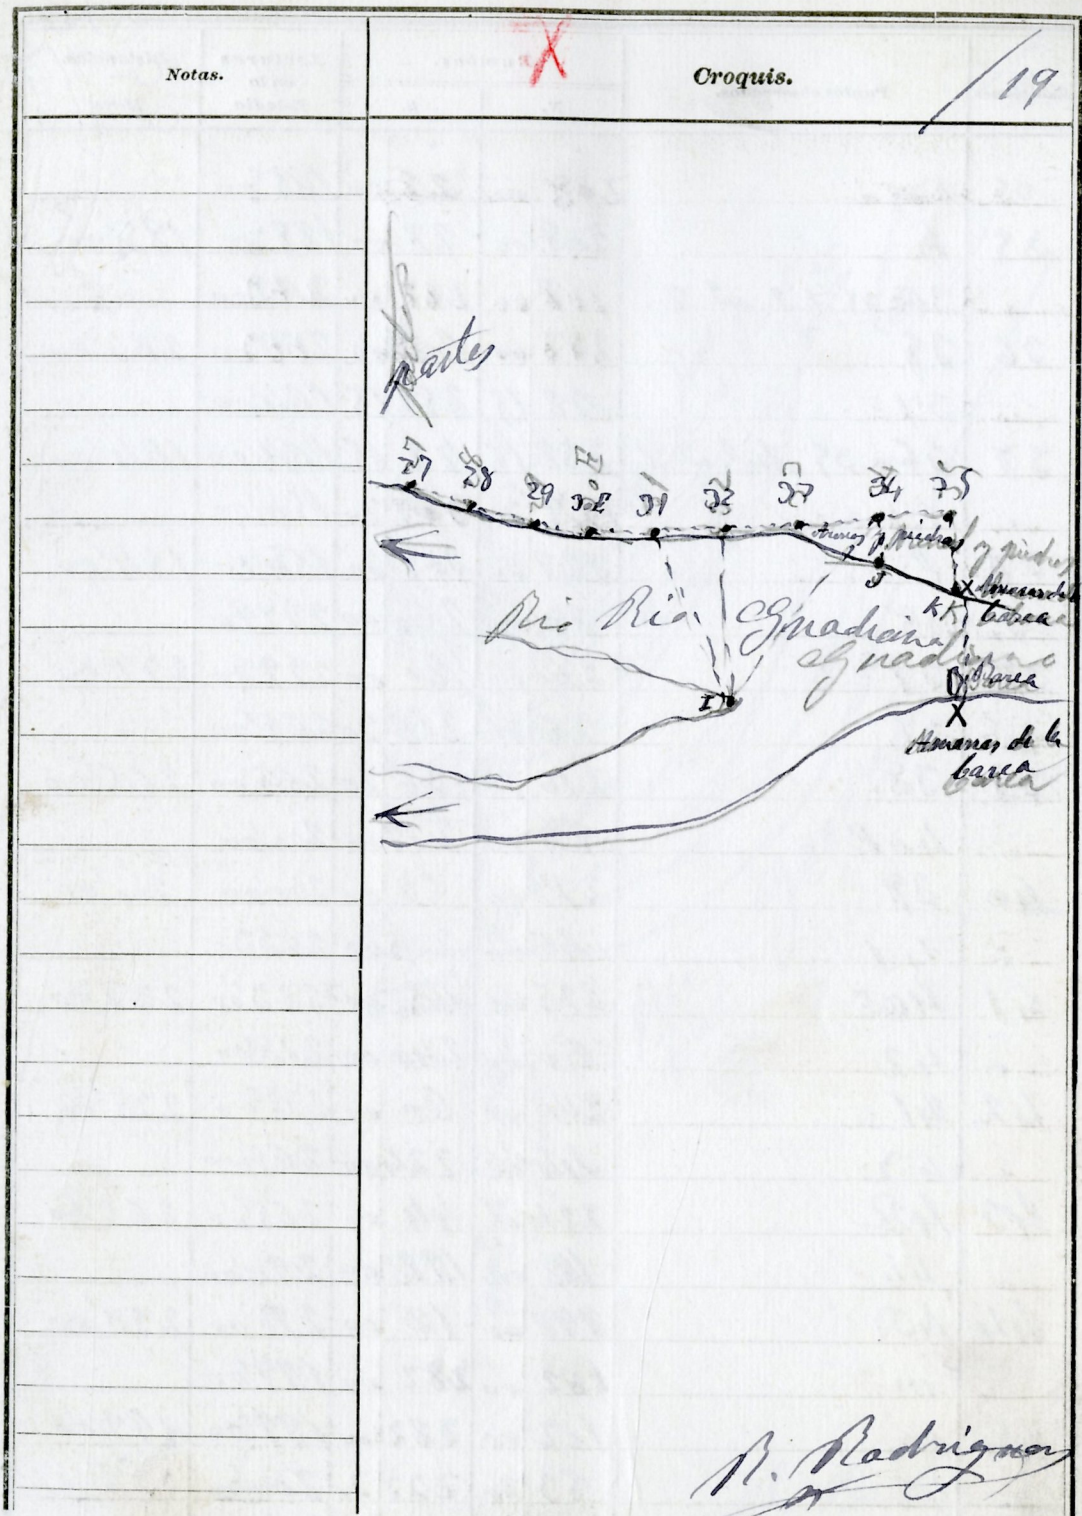 Notas.
X
Croquis.
/19
partes
27 28 29 30 31 32 33 34 35
Arenas y piedras
J
K
Amarras de la
barca
Rio Guadiana
I
Barca
Amarras de la
barca
R. Rodriguez